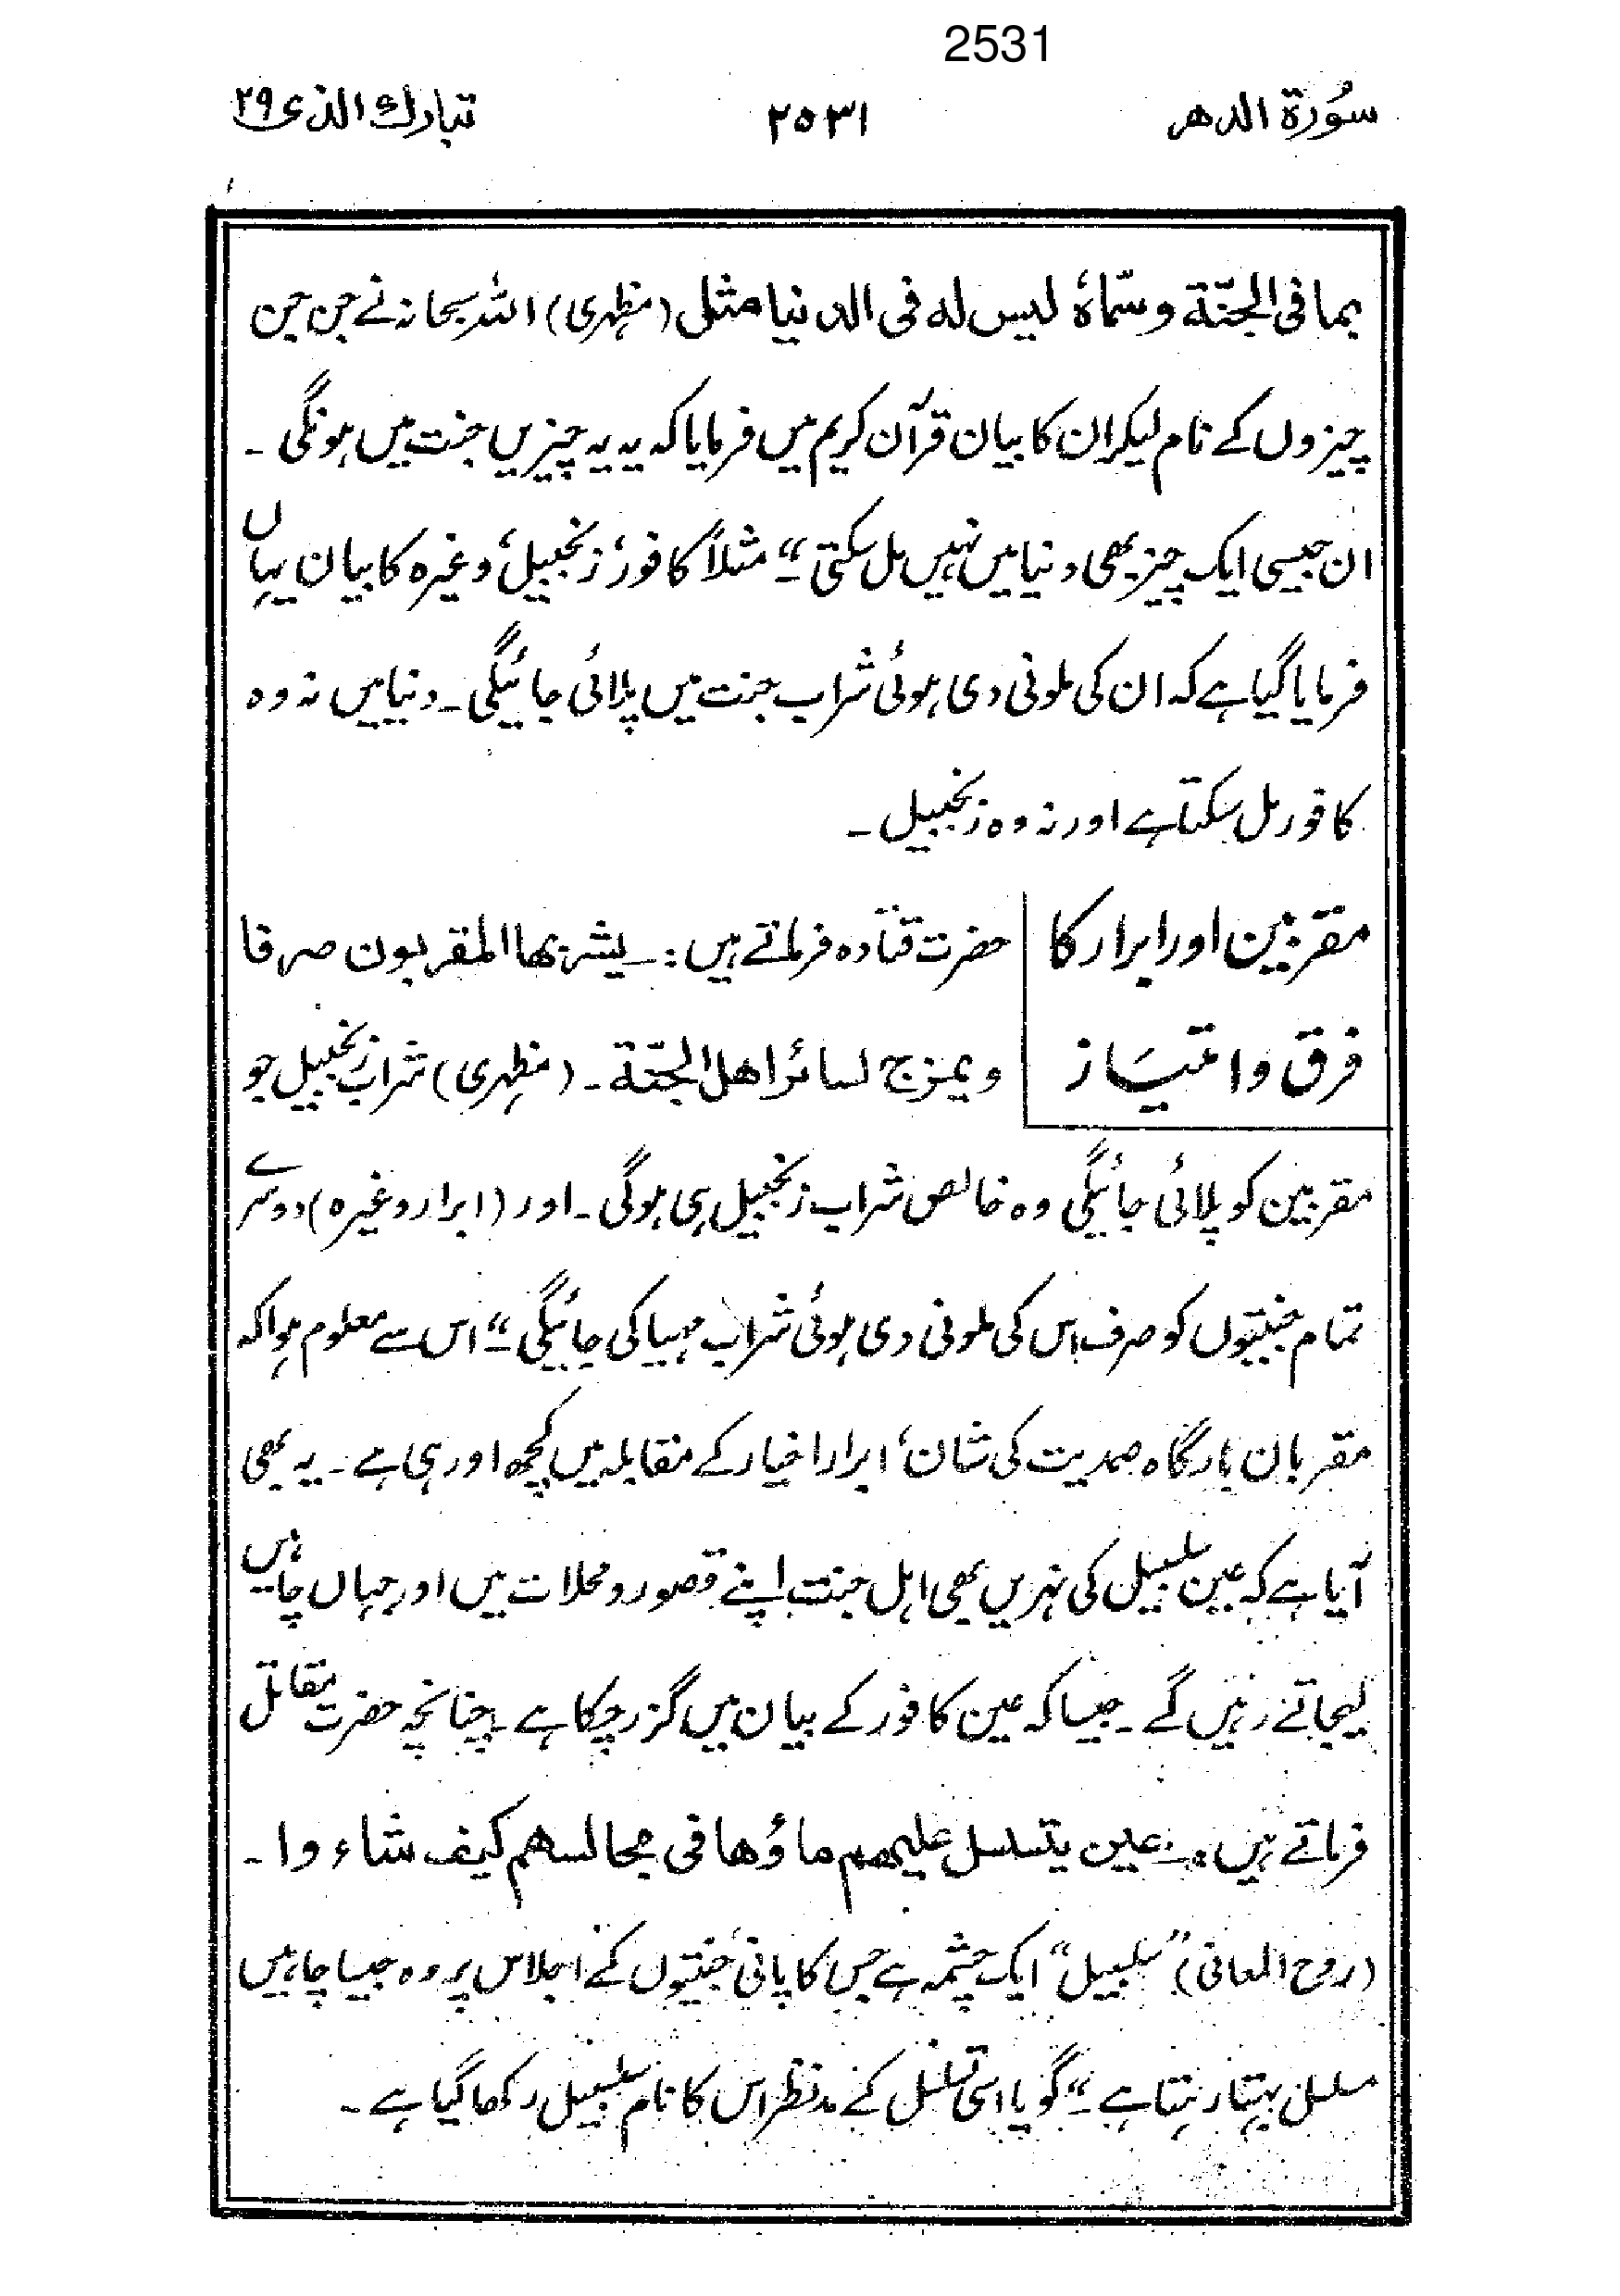 2531
سُورة الدهر ۲۵۳۱ تبارك الذى ۲۹
بما فى الجنّة وسّماہُ ليس له فى الدنيا مثل (مظہری) اللہ سبحانہ نے جن جن
چیزوں کے نام لیکر ان کا بیان قرآن کریم میں فرمایا کہ یہ یہ چیزیں جنت میں ہونگی ۔
ان جیسی ایک چیز بھی دنیا میں نہیں مل سکتی ۔“ مثلاً کافور، زنجبیل، وغیرہ کا بیان یہاں
فرمایا گیا ہے کہ ان کی ملونی دی ہوئی شراب جنت میں پلائی جائیگی ۔ دنیا میں نہ وہ
کافور مل سکتا ہے اور نہ وہ زنجبیل ۔
مقربین اور ابرار کا
فرق و امتیاز
حضرت قتادہ فرماتے ہیں :۔ يشربها المقربون صرفا
ويمزج لسائر اهل الجنّة ۔ (مظہری) شراب زنجبیل جو
مقربین کو پلائی جائیگی وہ خالص شراب زنجبیل ہی ہوگی ۔ اور (ابرار وغیرہ) دوسرے
تمام جنتیوں کو صرف اس کی ملونی دی ہوئی شراب مہیا کی جائیگی ۔“ اس سے معلوم ہوا کہ
مقربان بارگاہ صمدیت کی شان، ابرار اخیار کے مقابلہ میں کچھ اور ہی ہے ۔ یہ بھی
آیا ہے کہ عین سلسبیل کی نہریں بھی اہل جنت اپنے قصور و محلات میں اور جہاں چاہیں
لیجاتے رہیں گے ۔ جیسا کہ عین کافور کے بیان میں گزر چکا ہے ۔ چنانچہ حضرت مقاتل
فرماتے ہیں :۔ عين يتسلسل عليهم ماؤها فى مجالسهم كيف شاءوا ۔
(روح المعانی) ”سلسبیل“ ایک چشمہ ہے جس کا پانی، جنتیوں کے اجلاس پر وہ جیسا چاہیں
مسلسل بہتا رہتا ہے ۔“ گویا اسی تسلسل کے مدنظر اس کا نام سلسبیل رکھا گیا ہے ۔